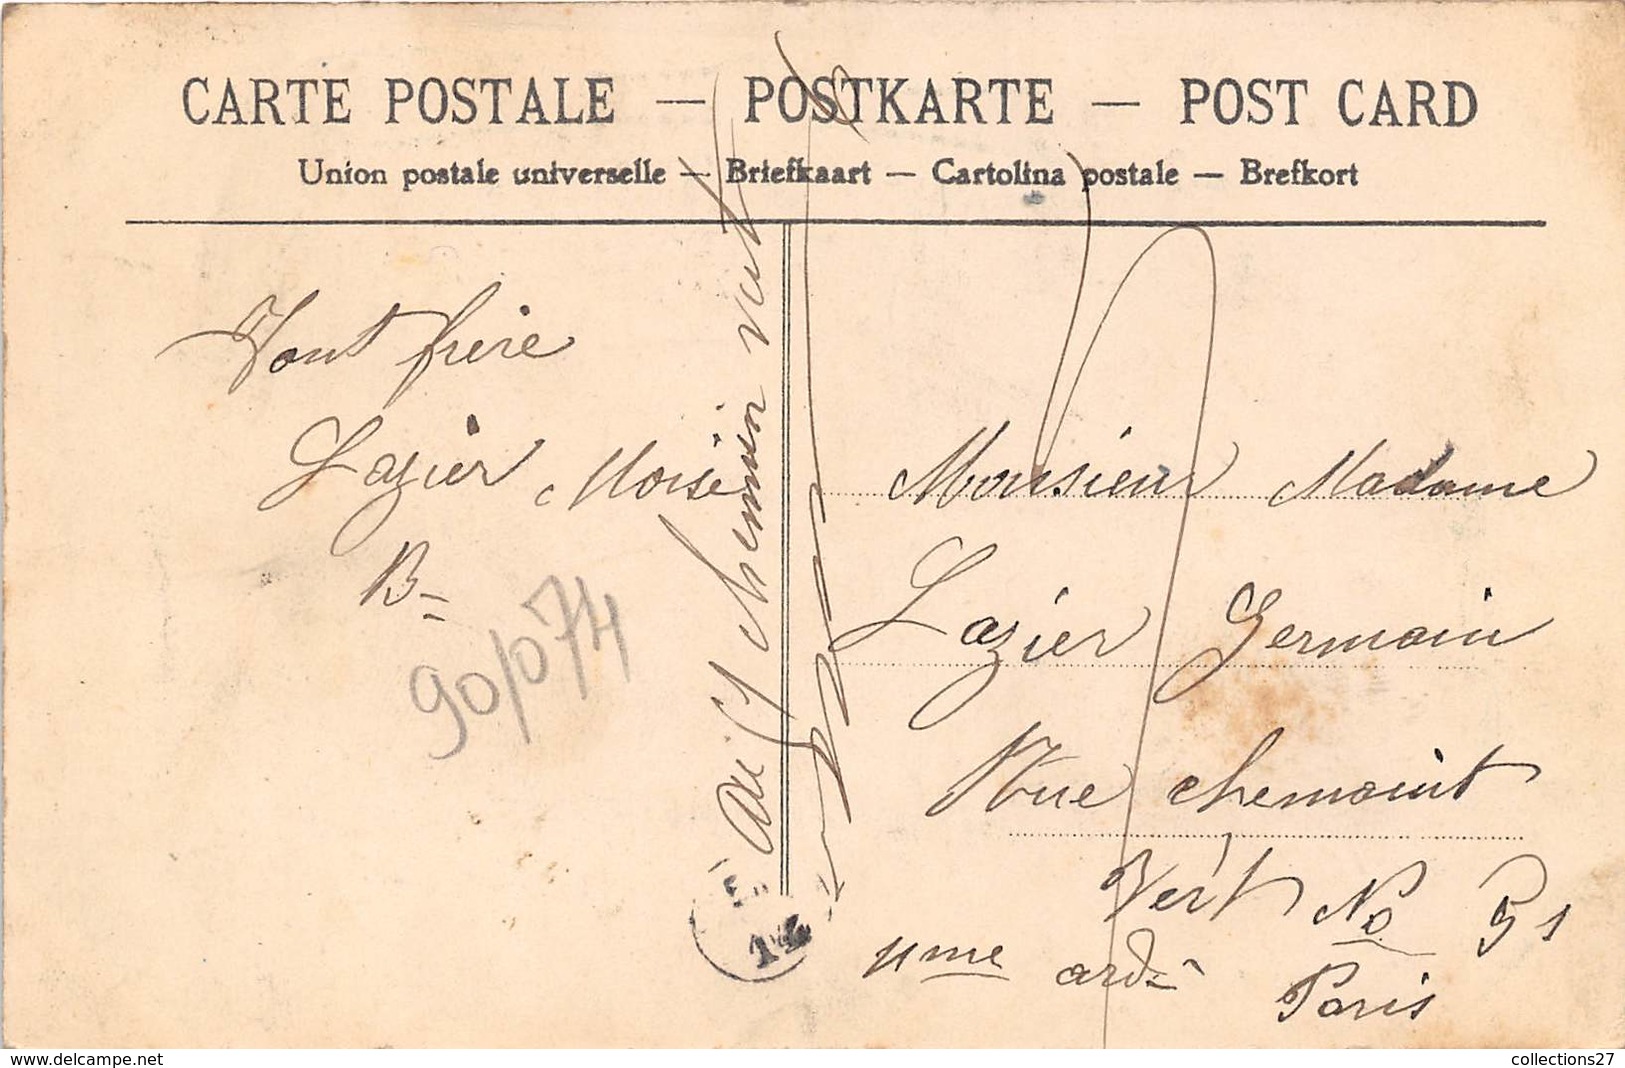 CARTE POSTALE — POSTKARTE — POST CARD
Union postale universelle — Briefkaart — Cartolina postale — Brefkort
Vont frère
Lazier Moïse
B=
90/074
chemin vert
Monsieur Madame
Lazier Germain
Rue chemaint
Vert No 91
11me ard=
Paris
collections27